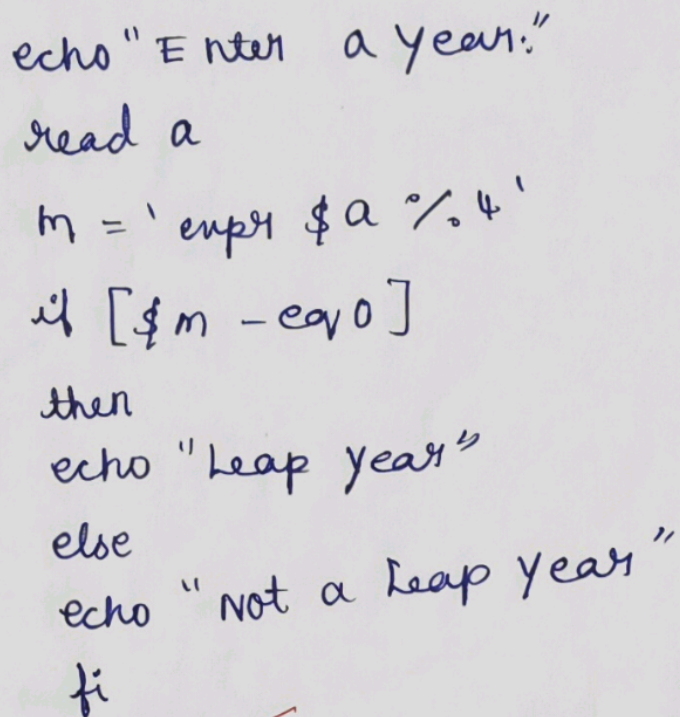 echo "Enter a year:"
read a
m = ` expr $a % 4 `
if [$m -eq 0]
then
echo "Leap year"
else
echo "Not a Leap year"
fi